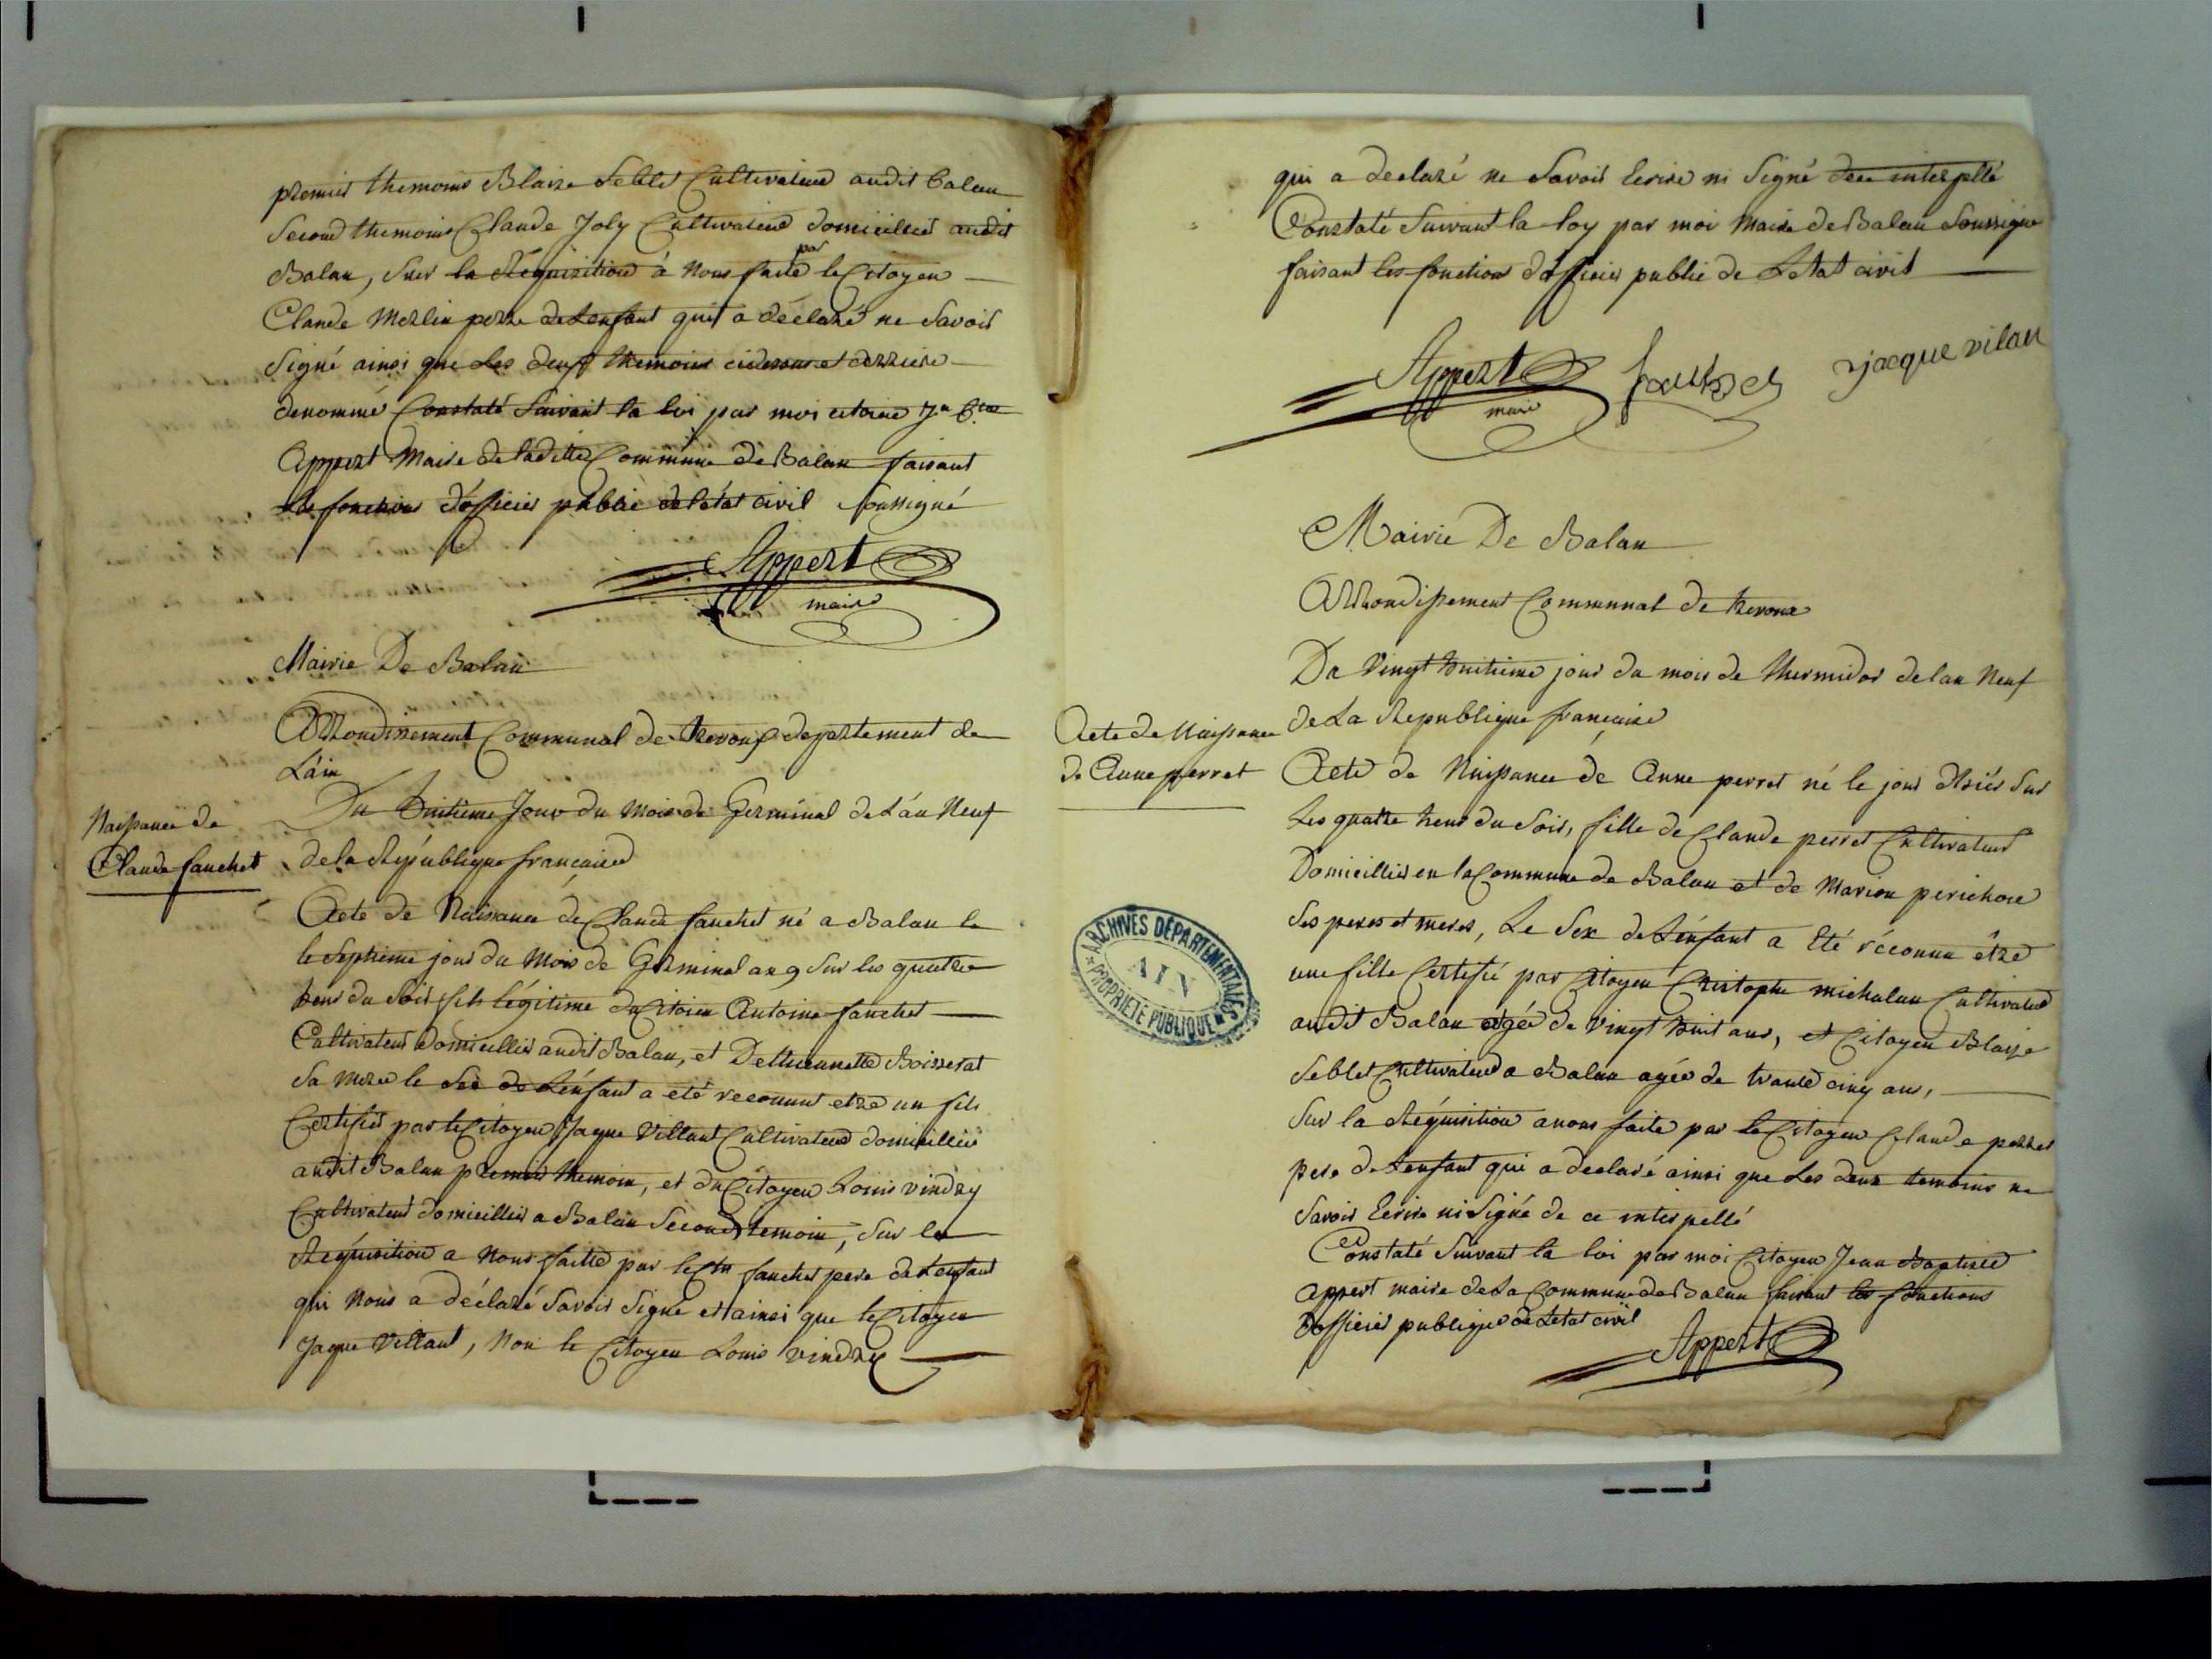 premier themoins Blaise Seblet Cultivateur audit balan
Second themoins Claude Joly Cultivateur domicillier audit
Balan, sur la Réquisition à nous faite par le Citoyen
Claude Merlin perre de Lenfant quit a déclaré ne Savoir
Signé ainsi que Les deux themoins cidessus et derriere
denommé Constaté Suivant la loi par moi citoien Jn Bte
Appert Maire de ladite Commune de Balan faisant
les fonctions d'officier public de létat civil soussigné
Appert
maire
Mairie De Balan
Arrondissement Communal de trevoux departement de
L'ain
Naissance de
Claude fauchet
Du huitieme Jour du Mois de Germinal de L'an Neuf
de la République francaise
Acte de Naissance de Claude fauchet né a Balan le
le Septieme jour du Mois de Germinal an 9 Sur les quattre
heur du Soir fils légitime du Citoien Antoine fauchet
Cultivateur domicillier audit Balan, et De thiennette Boisserat
Sa Mere le Sec de L'énfant a eté reconnut etre un fils
Certifier par le Citoyen Jaque Villant Cultivateur domicillier
audit Balan premier themoin, et du Citoyen Louis vindry
Cultivateur domicillier a Balan Second temoin, Sur la
Réquisition a Nous faitte par le Cn fauchet pere de Lenfant
qui Nous a déclaré Savoir Signé et ainsi que le Citoyen
Jaque Villant, Non le Citoyen Louis vindry
qui a declaré ne Savoir Ecrire ni Signé de ce interpellé
Constaté Suivant la loy par moi Maire de Balan Soussigne
faisant les fonction d'officier public de Letat civil
Appert
maire
fauchet
jacque vilan
Mairie De Balan
Arrondissement Communal de trevoux
Du Vingt huitieme jour du mois de thermidor de lan Neuf
de La Republique francaise
Acte de Naissance
de Anne perret
Acte de Naissance de Anne perret né le jour d'hiér Sur
Les quatre heur du Soir, fille de Claude perret Cultivateur
Domicillier en la Commune de Balan et de Marion perichon
Ses peres et meres, Le Sex de L'énfant a Eté réconnu être
une fille Certifié par Citoyen Christophe michalan Cultivateur
audit Balan agée de vingt huit ans, et Citoyen Blaise
Seblet Cultivateur a Balan agée de trante cinq ans,
Sur la Réquisition anous faite par le Citoyen Claude perret
pere de Lenfant qui a declaré ainsi que Les deux temoins ne
Savoir Ecrire ni Signé de ce interpellé
Constaté Suivant la loi par moi Citoyen Jean Baptiste
appert maire de La Commune de Balan faisant les fonctions
d'officier publique de Letat civil
Appert
ARCHIVES DÉPARTEMENTALES
AIN
PROPRIÉTÉ PUBLIQUE